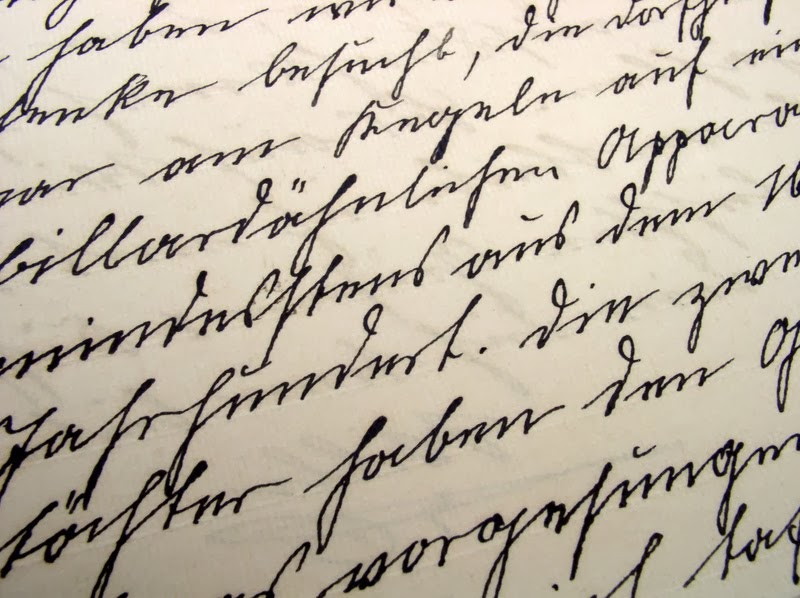 haben wir
besucht, die Dorfschen
war am Kegeln auf ein
billardähnlichen Appara
mindestens aus dem 16
Jahrhundert. Die zwe
töchter haben den G
vorgesungen
ich